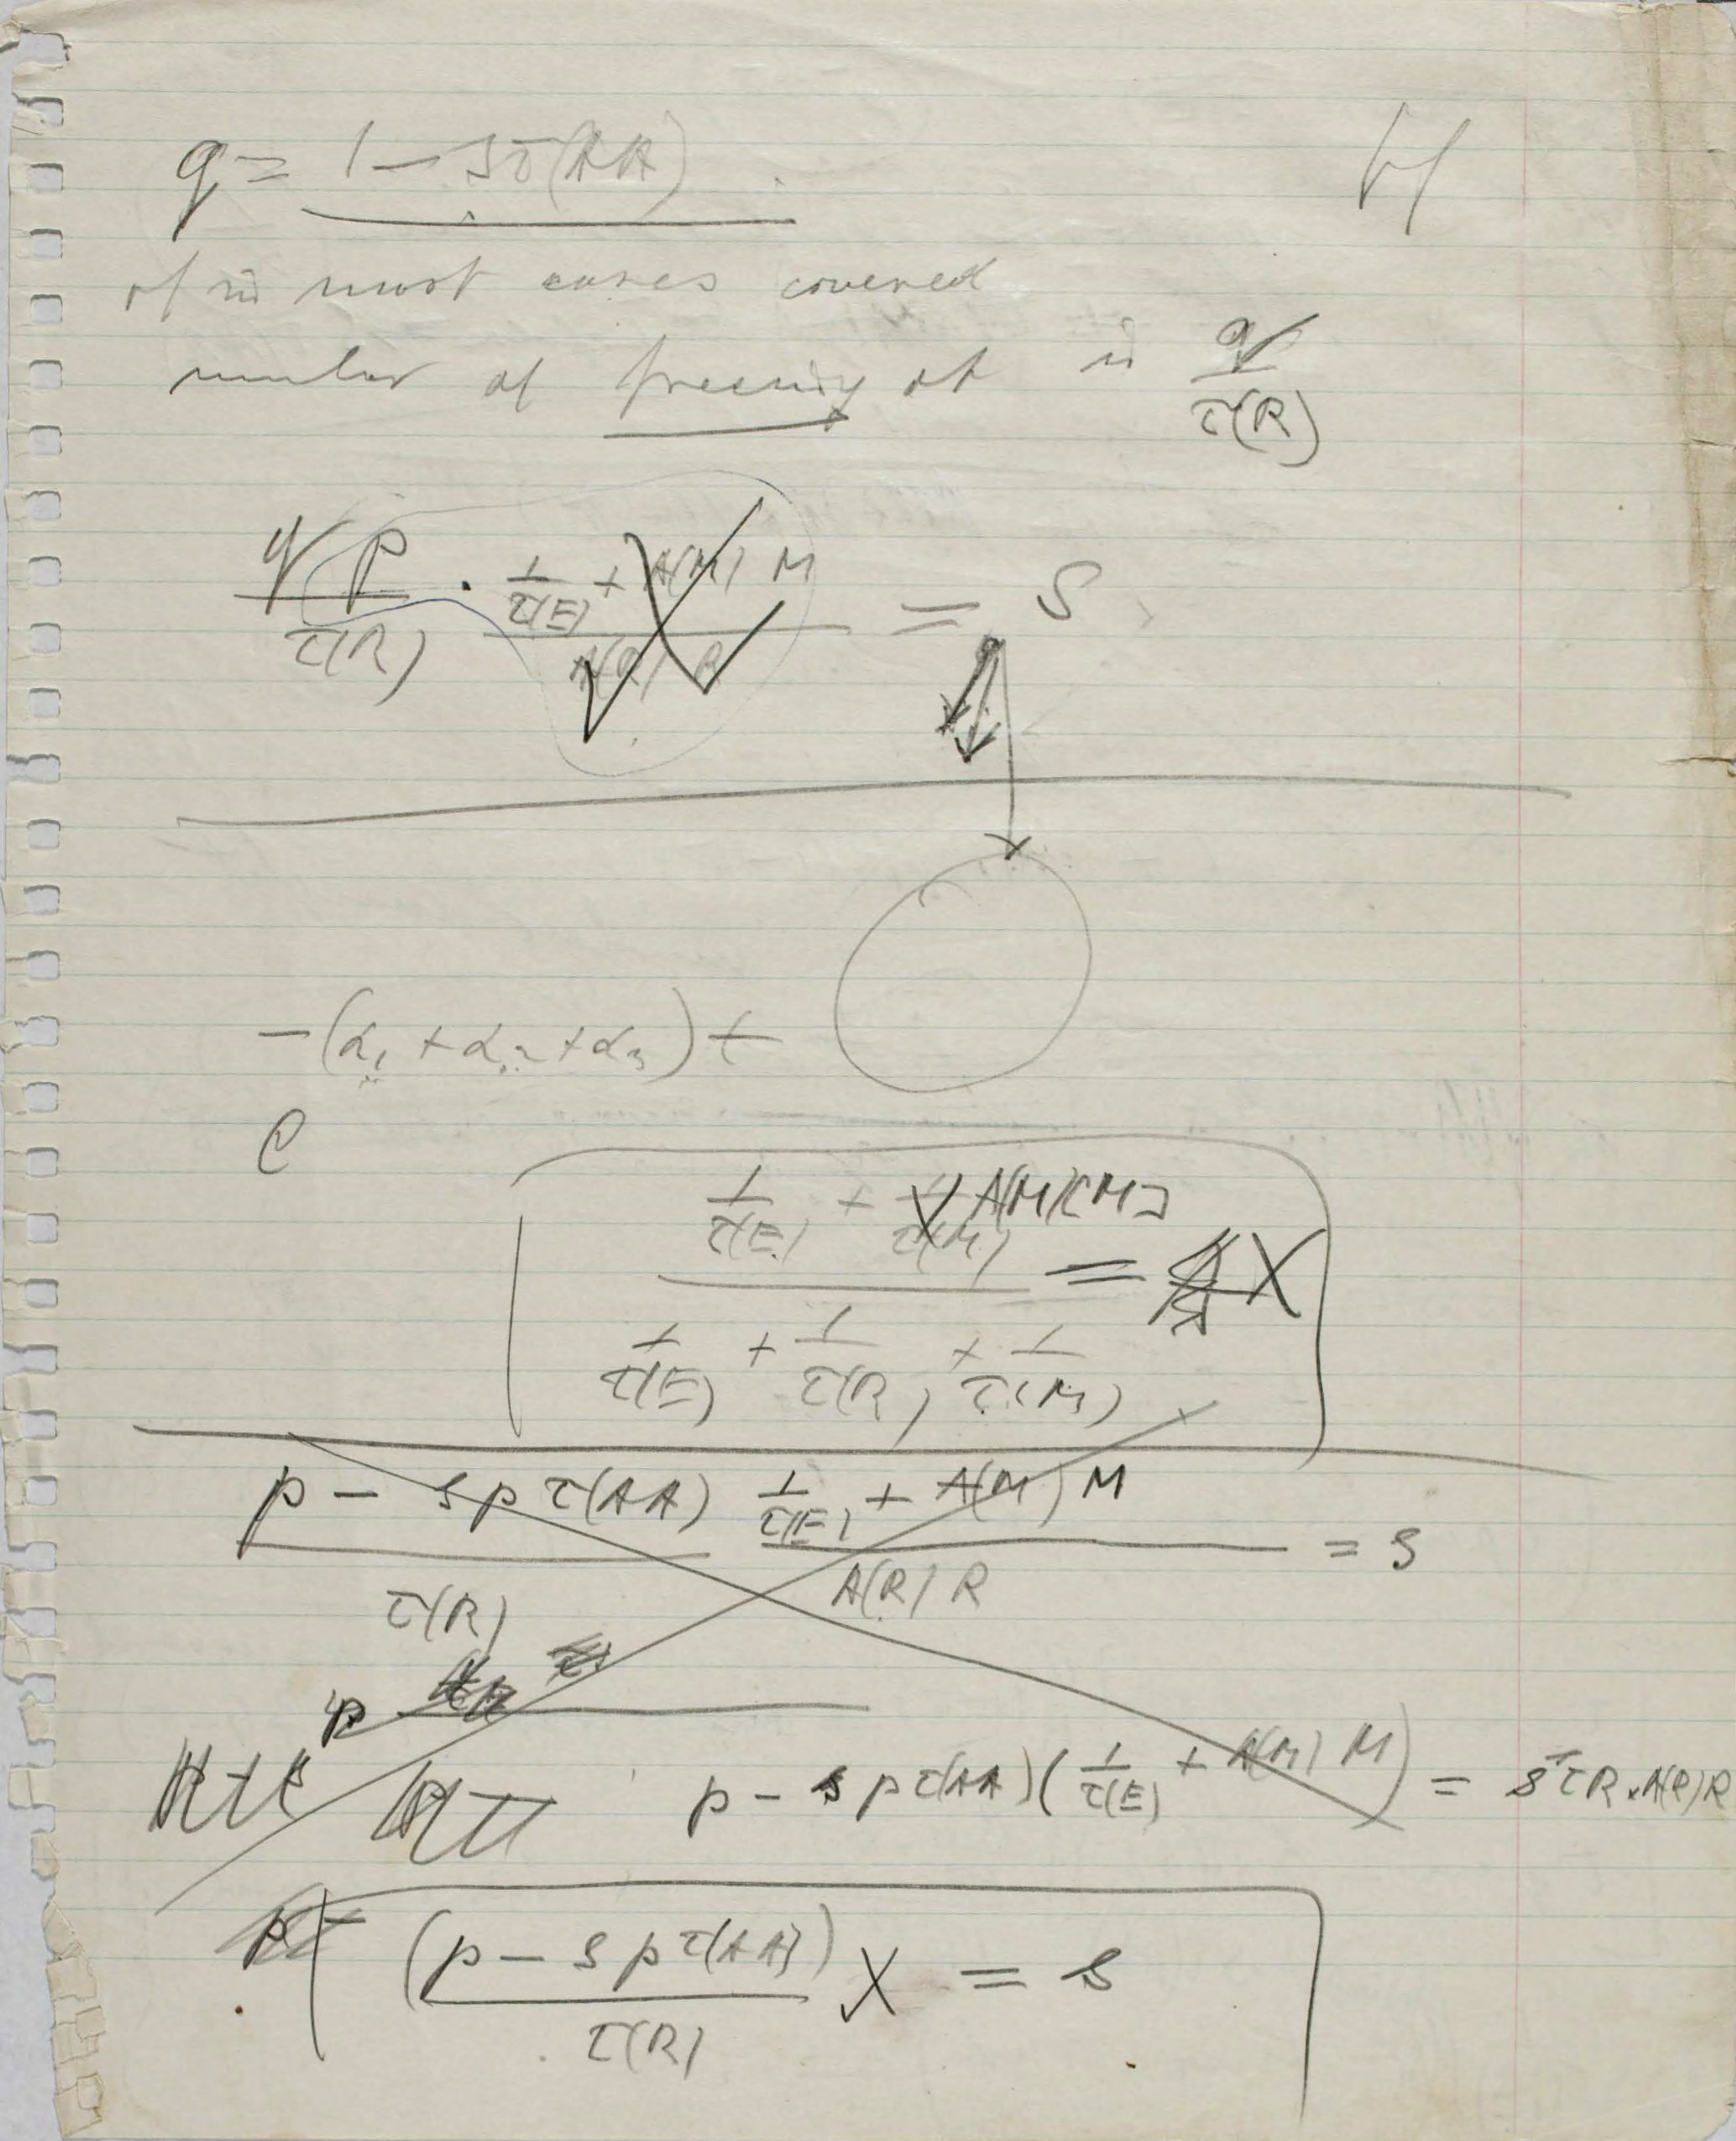 q = 1 − sτ(AA)
of in most cases covered
number of freeing of is q / τ(R)
q p / τ(R) · (1/τ(E) + A(M) M) / (A(R) R) = S
−(α1 + α2 + α3) t
e
(1/τ(E) + A(M)[M]) / (1/τ(E) + 1/τ(R) + 1/τ(M)) = X
(p − s p τ(AA)) / τ(R) (1/τ(E) + A(M) M) / (A(R) R) = s
p
p − s p τ(AA) (1/τ(E) + A(M) M) = s τR · A(R) R
(p − s p τ(AA)) / τ(R) X = s